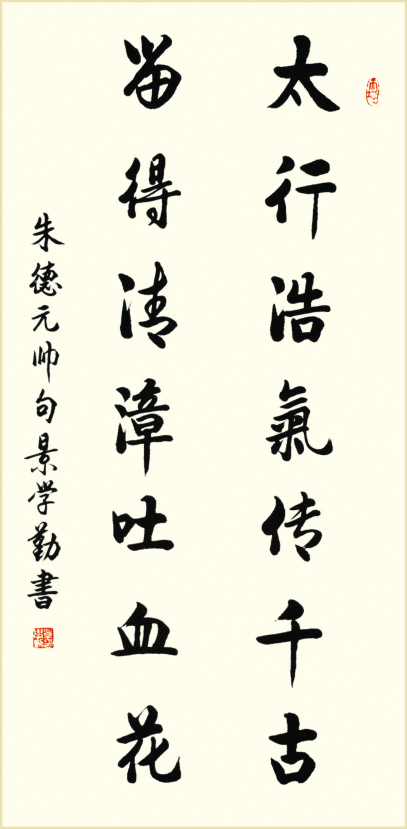 太行浩氣传千古
留得清漳吐血花
朱德元帅句景学勤書